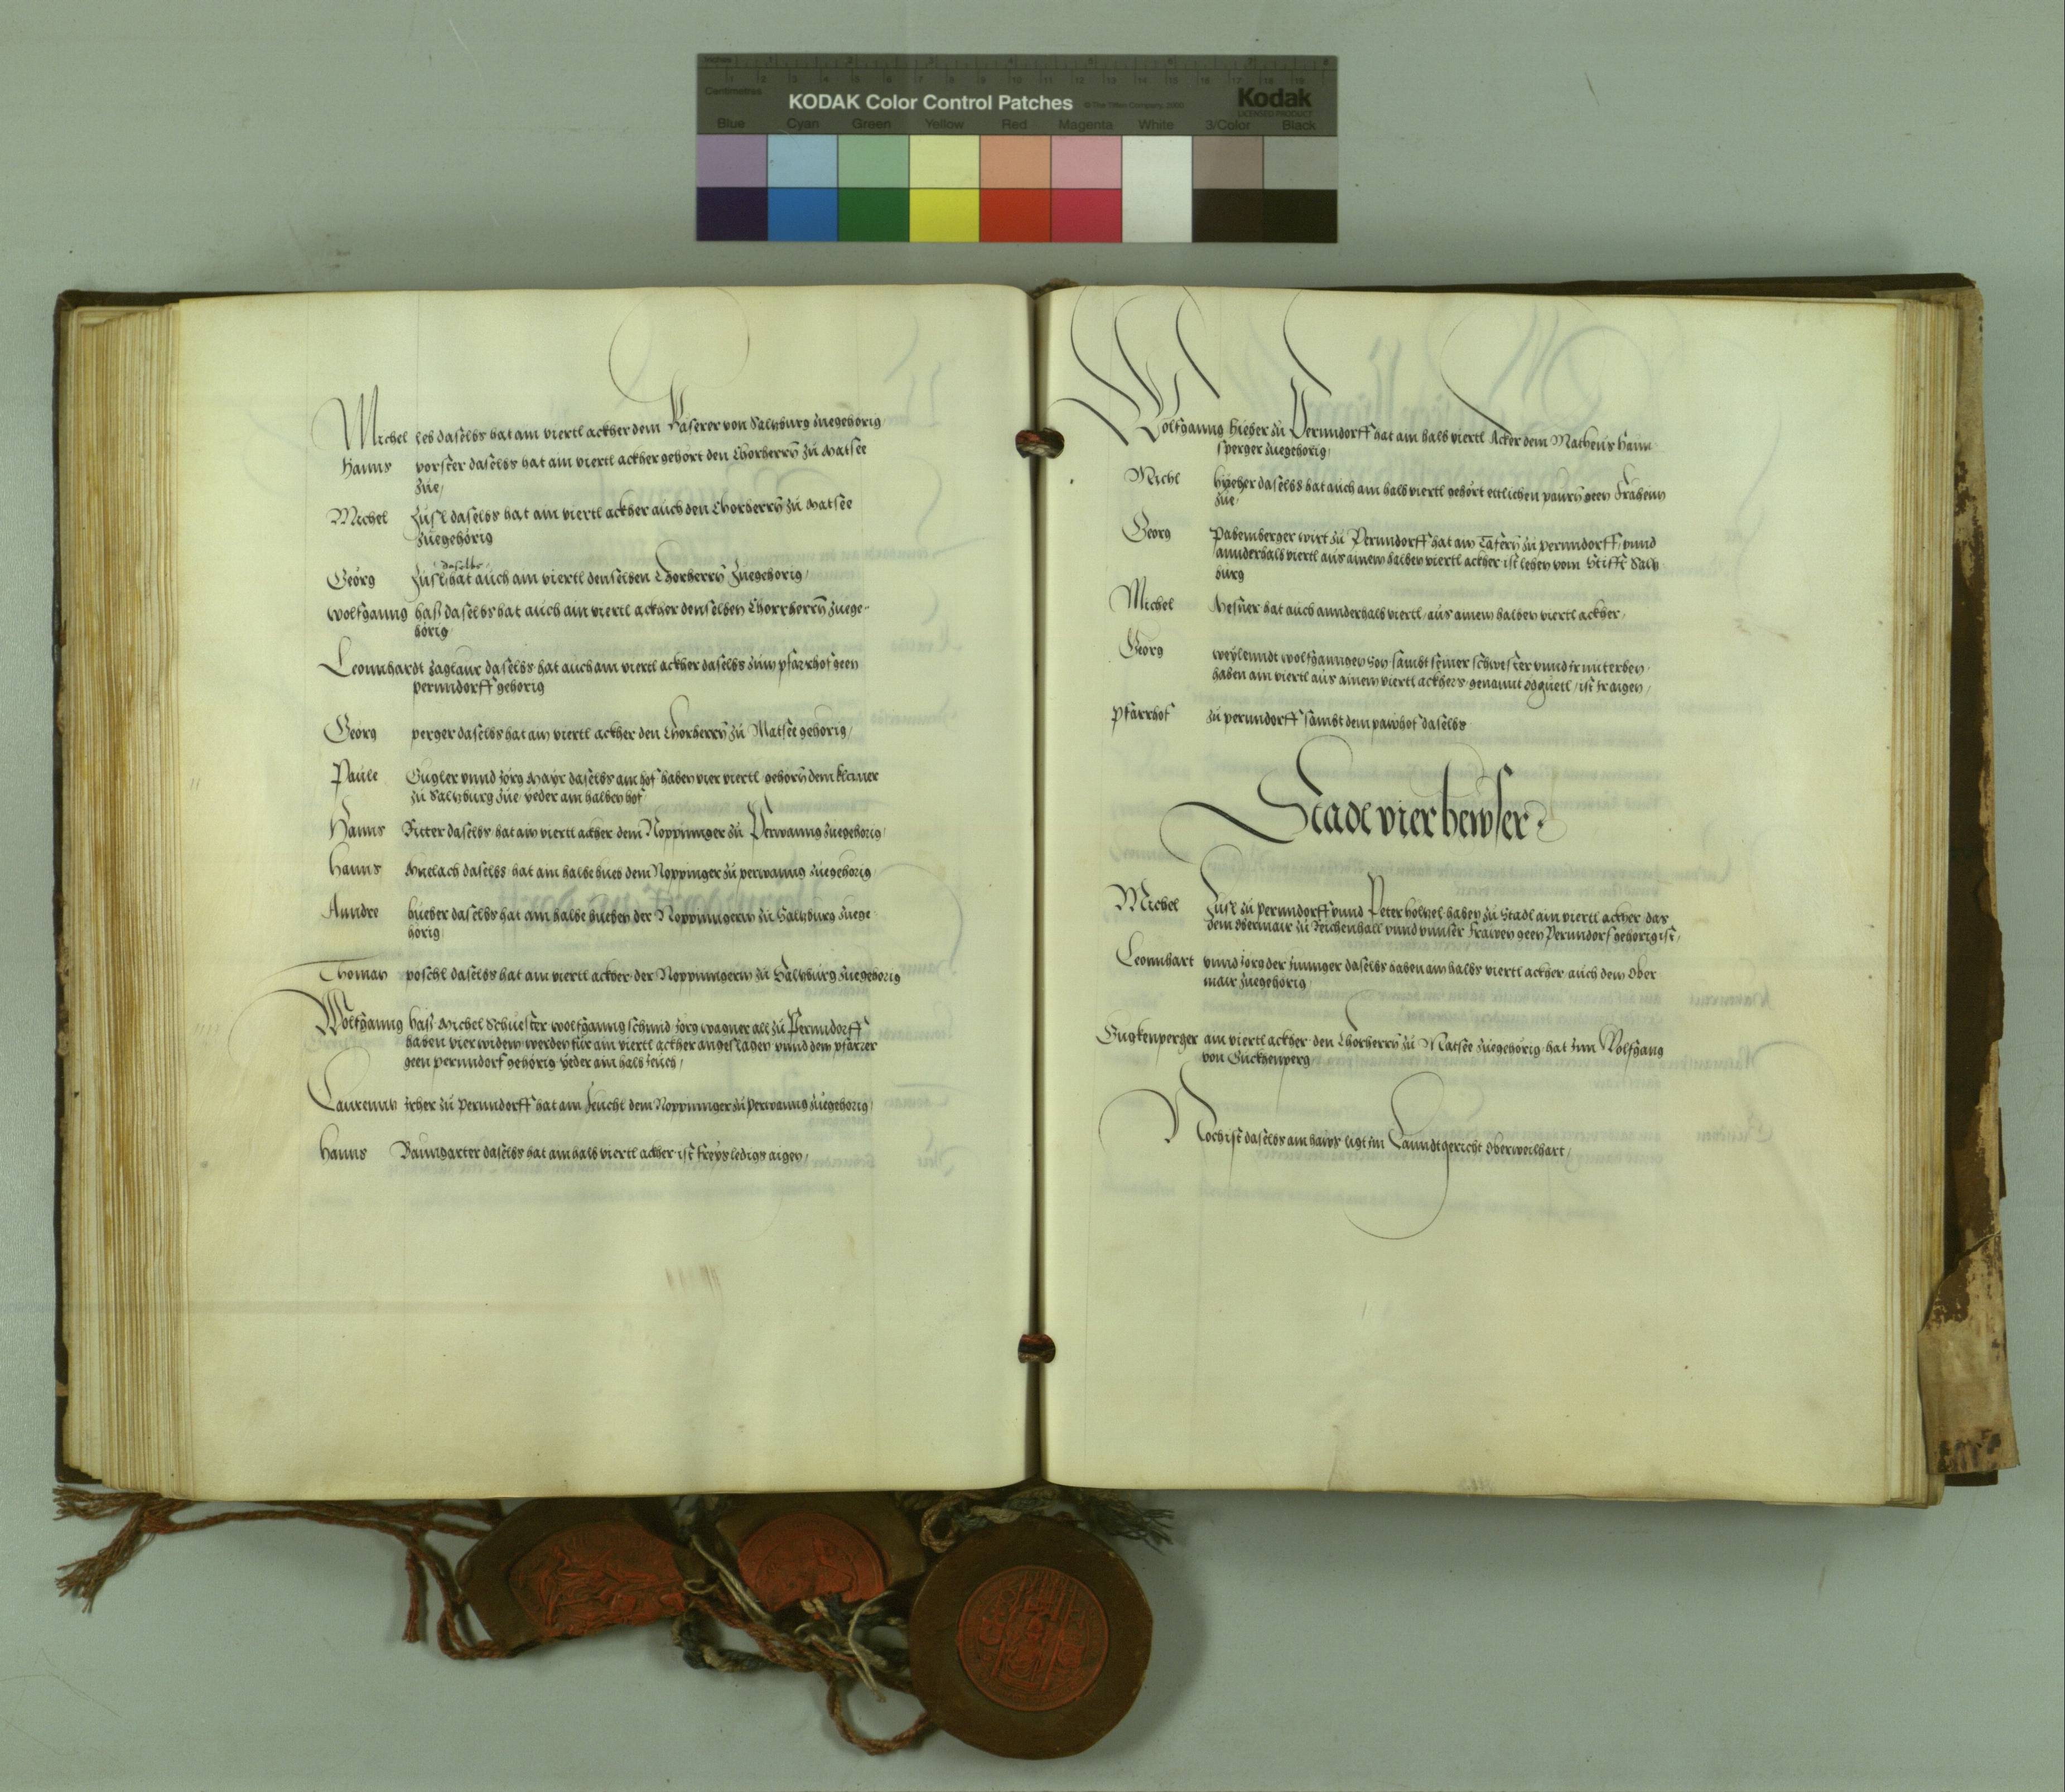 KODAK Color Control Patches
© The Tiffen Company, 2000
Kodak
LICENSED PRODUCT
Inches
Centimetres
Blue Cyan Green Yellow Red Magenta White 3/Color Black
Michel leb daselbs hat am viertl ackher dem Paserer von Saltzburg zuegehörig
Hanns vorster daselbs hat am viertl ackher gehört den Chorherrn zu Matsee
zue
Michel Zuisl daselbs hat am viertl ackher auch den Chorherrn zu Matsee
zuegehörig
daselbs
Georg Zuisl hat auch am viertl denselben Chorherrn zuegehörig
Wolfganng haß daselbs hat auch ain viertl ackher denselben Chorrherrn zuege-
hörig
Leonnhardt Zaglaur daselbs hat auch am viertl ackher daselbs zum pfarrhof geen
perndorff gehörig
Georg perger daselbs hat ain viertl ackher den Chorherrn zu Matsee gehörig
Paule Gugler vnnd Jorg Mayr daselbs am hof haben vier viertl gehörn dem
zu Saltzburg zue yeder am halben hof
Hanns Ritter daselbs hat ain viertl ackher dem Noppinnger zu Perwanng zuegehörig
Hanns daselbs hat am halbe hueb dem Noppinger zu perwanng zuegehörig
Anndre hueber daselbs hat am halbe hueben der Noppinngerin zu Saltzburg zuege
hörig
Thoman poschl daselbs hat am viertl ackher der Noppinngerin zu Saltzburg zuegehörig
Wolfganng haß Michel Schuester wolfganng schmid Jorg wagner all zu Pernndorff
haben vier widem werden für ain viertl ackher angeslagen vnnd dem pfarrer
geen perndorf gehörig yeder am halb
Laurenntz zu perndorff hat am dem Noppinnger zu perwanng zuegehörig
Hanns Baumgarter daselbs hat ain halb viertl ackher ist freys ledigs aigen
Wolfganng hieber zu Pernndorff hat am halb viertl Acker dem Matheus Haun
sperger zuegehörig
Michl daselbs hat auch am halb viertl gehört ettlichen paurn geen
zue
Georg Pabemberger wirt zu Perndorff hat ain Tafern zu perndorff vnnd
annderhalb viertl aus ainem halben viertl ackher ist lehen vom Stifft Saltz
burg
Michel Mesner hat auch annderhalb viertl aus ainem halben viertl ackher
Georg weylenndt wolfganngen Son sambt seiner schwester vnnd Ir miterben
haben am viertl aus ainem viertl ackhers genannt ist Ir aigen
Pfarrhof zu perndorff sambt dem pawhof daselbs
Stadl vier hewser
Michel Zuisl zu perndorff vnnd Peter höltzel haben zu Stadl ain viertl ackher das
dem Obermair zu Reichenhall vnnd vnnser frawen geen Perndorf gehörig ist
Leonnhart vnnd Jorg der Jünger daselbs haben am halbs viertl ackher auch dem Ober
mair zuegehörig
Gugkenperger am viertl ackher den Chorherrn zu Matsee zuegehörig hat Inn Wolfgang
von Guckhenperg
Noch ist daselbs am haws ligt im Lanndtgericht Oberweilhart